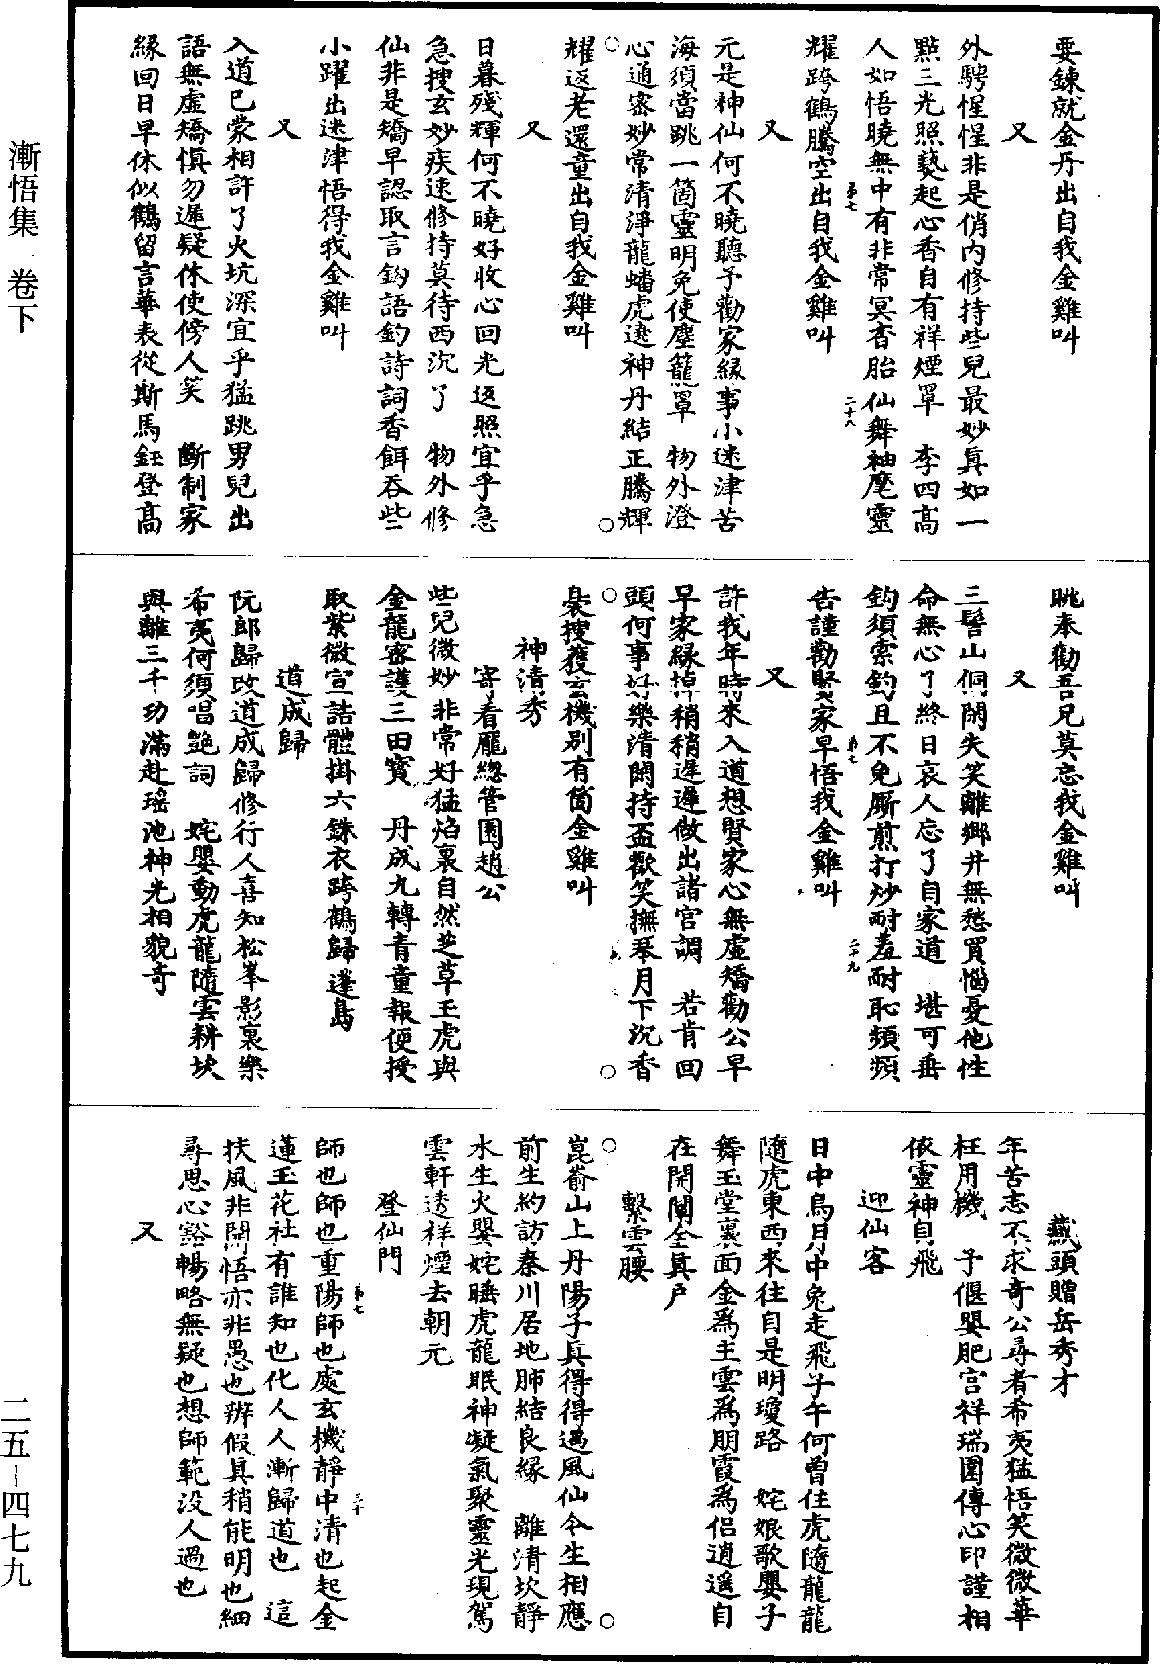 要鍊就金丹出自我金雞叫
又
外騁惺惺非是俏內修持些兒最妙真如一
點三光照爇起心香自有祥煙罩　李四高
人如悟曉無中有非常冥杳胎仙舞袖麾靈
耀跨鶴騰空出自我金雞叫
又
元是神仙何不曉聽予勸家緣事小迷津苦
海須當跳一箇靈明免使塵籠罩　物外澄
心通密妙常清淨龍蟠虎遶神丹結正騰輝
耀返老還童出自我金雞叫
又
日暮殘輝何不曉好收心回光返照宜乎急
急搜玄妙疾速修持莫待西沉了　物外修
仙非是矯早認取言鈎語釣詩詞香餌吞些
小躍出迷津悟得我金雞叫
又
入道已蒙相許了火坑深宜乎猛跳男兒出
語無虛矯慎勿遲疑休使傍人笑　斷制家
緣回日早休似鶴留言華表從斯馬鈺登高
眺奉勸吾兄莫忘我金雞叫
又
三髻山侗閑失笑離鄉井無愁買惱憂他性
命無心了終日哀人忘了自家道　堪可垂
鈎須索釣且不免厮煎打炒耐羞耐恥頻頻
告謹勸賢家早悟我金雞叫
又
許我年時來入道想賢家心無虛矯勸公早
早家緣掉稍稍遲遲做出諸宮調　若肯回
頭何事好樂清閑持盃歡笑撫琴月下沉香
裊搜獲玄機別有箇金雞叫
神清秀
寄看廳總管園趙公
些兒微妙非常好猛焰裏自然芝草玉虎與
金龍密護三田寶　丹成九轉青童報便授
取紫微宣誥體掛六銖衣跨鶴歸蓬島
道成歸
阮郎歸改道成歸修行人喜知松峯影裏樂
希夷何須唱艷詞　姹嬰動虎龍隨雲耕坎
與離三千功滿赴瑤池神光相貌奇
藏頭贈岳秀才
年苦志不求奇公尋者希夷猛悟笑微微華
枉用機　子偃嬰肥宮祥瑞圍傳心印謹相
依靈神自飛
迎仙客
日中烏月中兔走飛子午何曾住虎隨龍龍
隨虎東西來往自是明瓊路　姹娘歌嬰子
舞玉堂裏面金為主雲為朋霞為侶逍遥自
在開闡全真戶
繫雲腰
崑崙山上丹陽子真得得遇風仙今生相應
前生約訪秦川居地肺結良緣　離清坎靜
水生火嬰姹睡虎龍眠神凝氣聚靈光現駕
雲軒透祥煙去朝元
登仙門
師也師也重陽師也處玄機靜中清也起金
蓮玉花社有誰知也化人人漸歸道也　這
扶風非關悟亦非愚也辨假真稍能明也細
尋思心豁暢略無疑也想師範沒人過也
又
第七
二十八
第七
二十九
第七
三十
漸悟集　卷下
二五—四七九